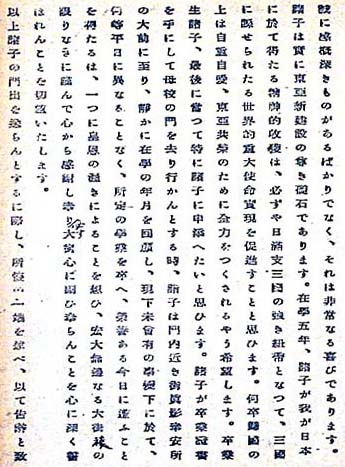 誠に感慨深きものがあるばかりでなく、それは非常なる喜びであります。
諸子は實に東亞新建設の尊き礎石であります。在學五年、諸子が我が日本
に於て得たる精神的收穫は、必ずや日滿支三國の強き紐帶となつて、三國
に課せられたる世界的重大使命實現を促進すことと思ひます。何卒歸國の
上は自重自愛、東亞共榮のために全力をつくされるやう希望します。卒業
生諸子、最後に當つて特に諸子に申添へたいと思ひます。諸子が卒業證書
を手にして母校の門を去り行かんとする時、諸子は門内近き御眞影奉安所
の大前に至り、靜かに在學の年月を囘顧し、現下未曾有の事變下に於て、
何等平日に異なることなく、所定の學業を卒へ、榮譽ある今日に逢ふこと
を得たるは、一つに皇恩の渥きによることを想ひ、宏大無邊なる大御稜の
限りなきに謹んで心から感謝し奉り大御心に副ひ奉らんことを心に深く誓
はれんことを切望いたします。
以上諸子の門出を送らんとするに際し、所懷の一端を述べ、以て告辭と致